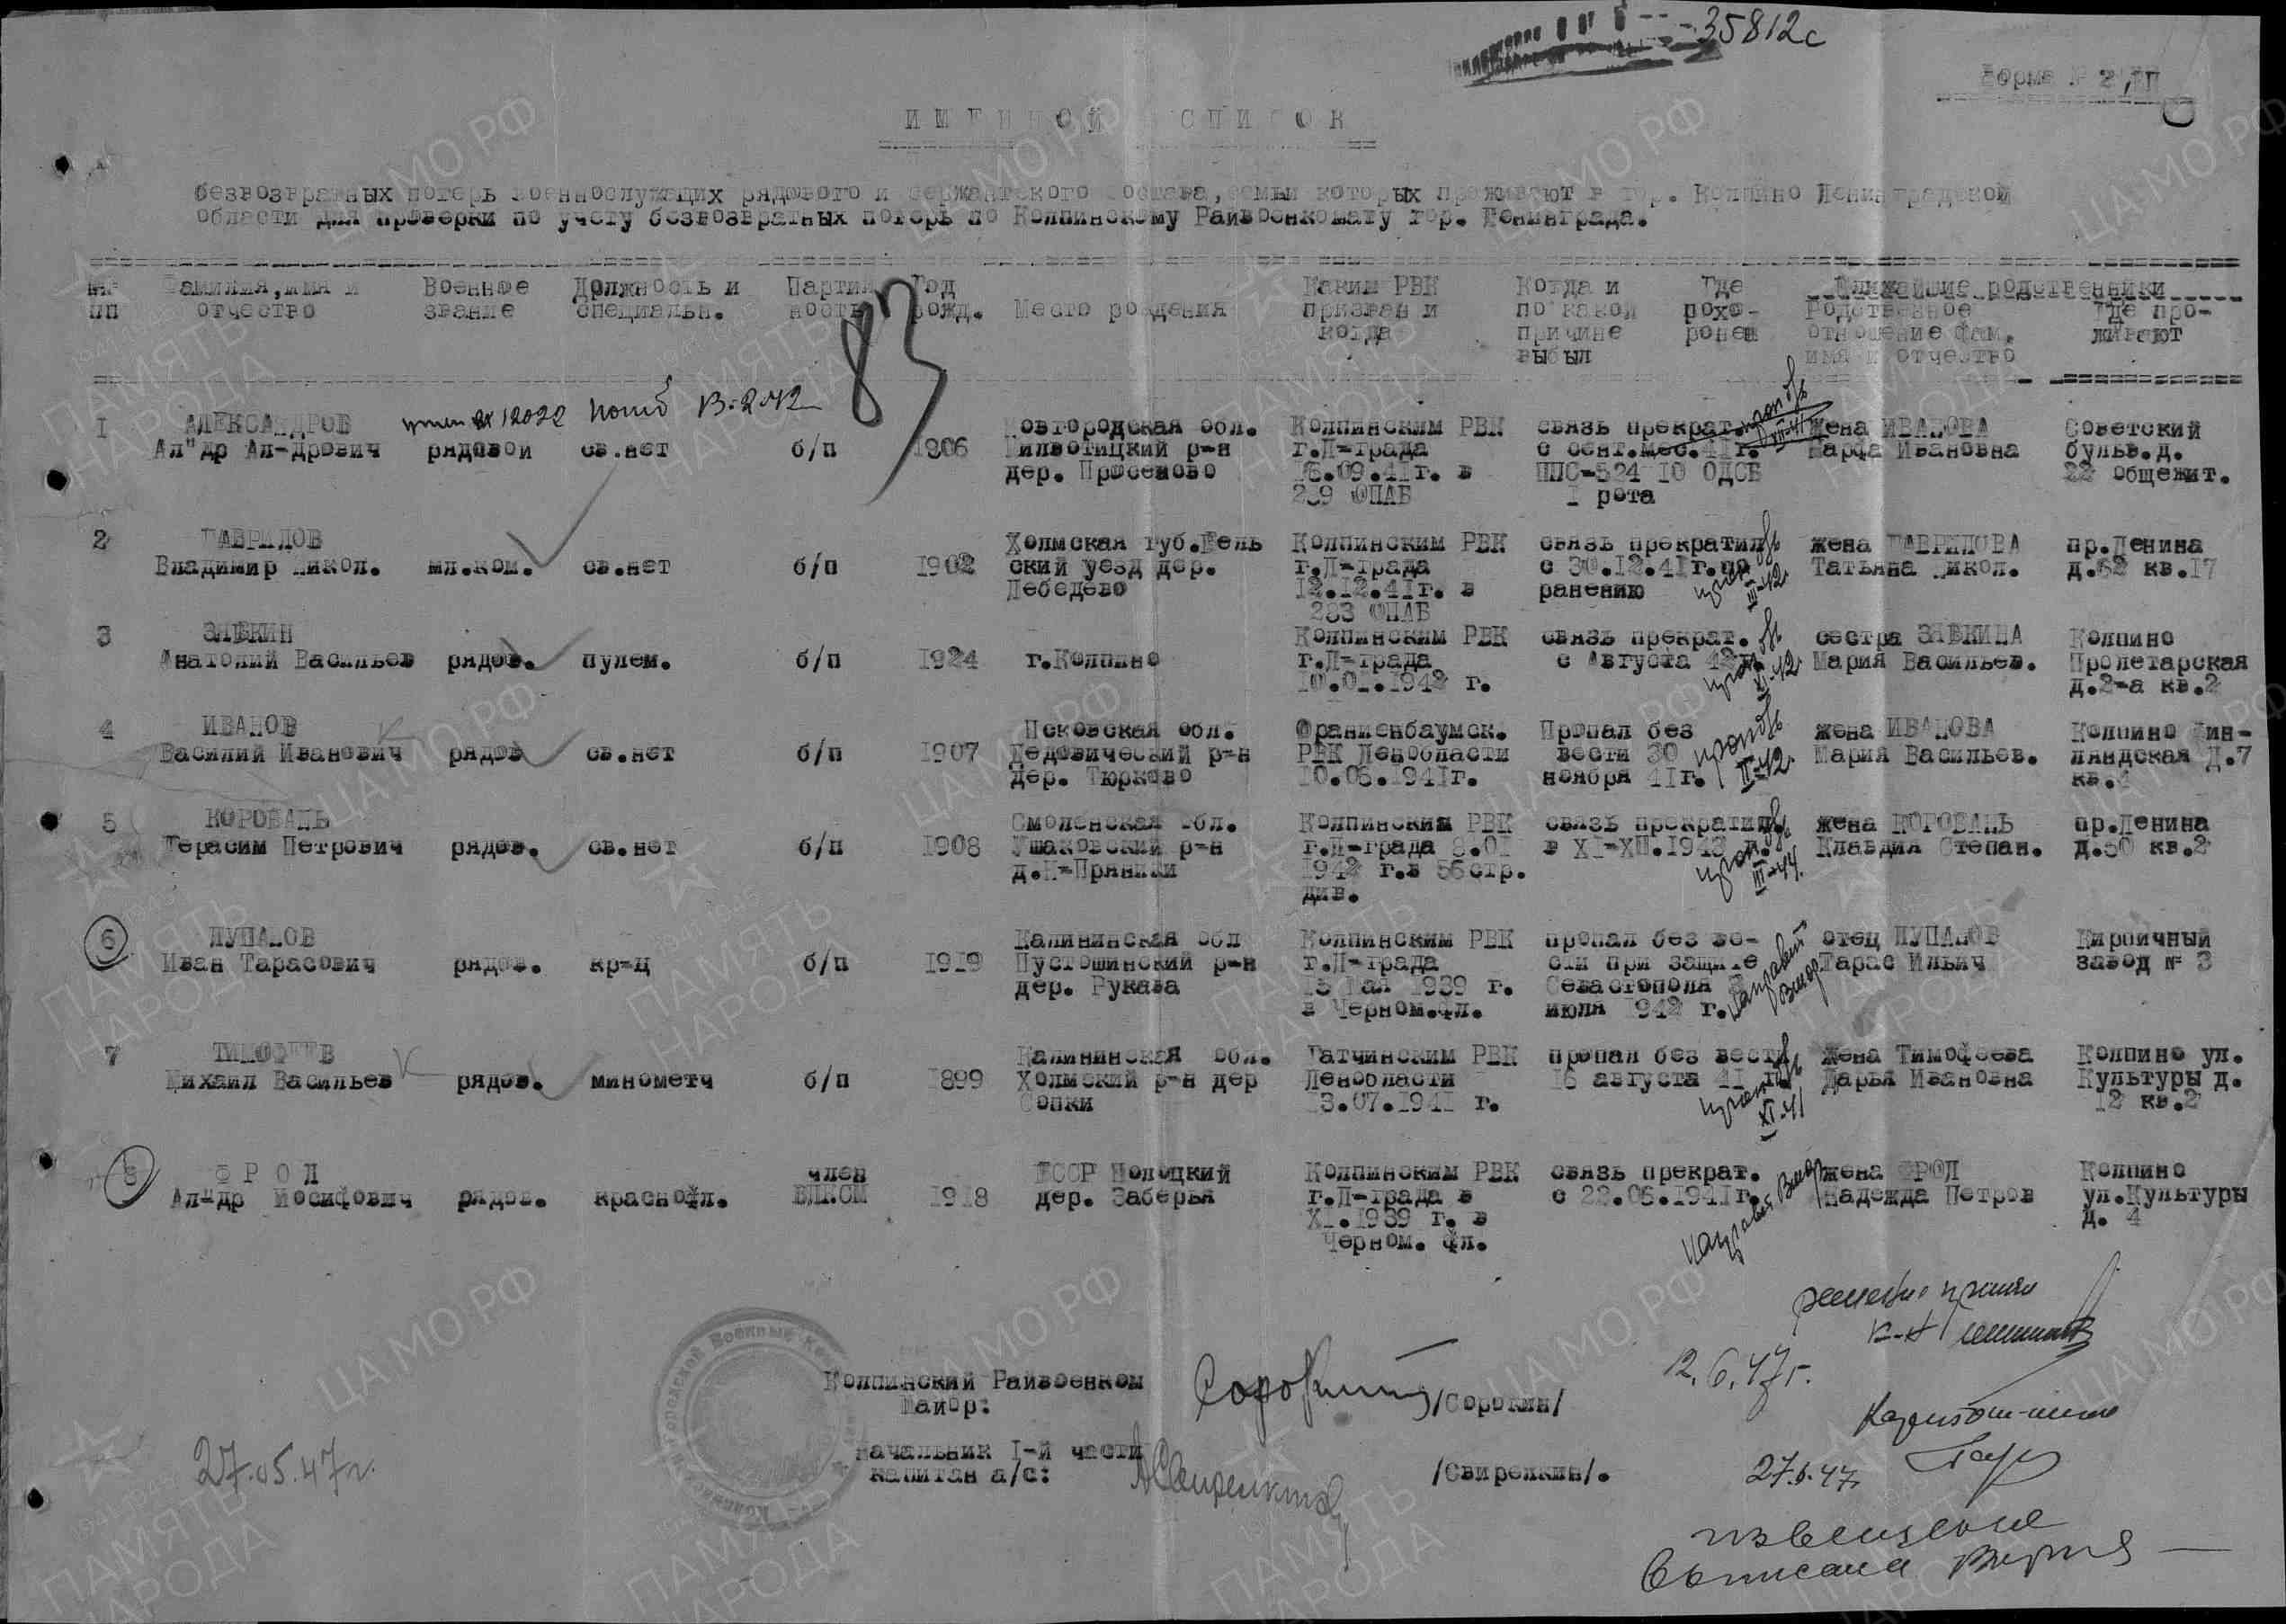 35812с
Форма № 2/БП
ИМЕННОЙ СПИСОК
безвозвратных потерь военнослужащих рядового и сержантского состава, семьи которых проживают в гор. Колпино Ленинградской
области для проверки по учету безвозвратных потерь по Колпинскому Райвоенкомату гор. Ленинграда.
№№ Фамилия, имя и Военное Должность и Партий Год Каким РВК Когда и Где Ближайшие родственники
пп отчество звание специальн. ность рожд. Место рождения призван и по какой похо- Родственное Где про-
когда причине ронен отношение фам. живают
выбыл имя и отчество
83
1 АЛЕКСАНДРОВ 12022 погиб 13.2.42 Новгородская обл. Колпинским РВК связь прекрат. жена ИВАНОВА Советский
Ал"др Ал-дрович рядовой св.нет б/п 1906 р-н г.Л-града с сент.мес.41г. Марфа Ивановна бульв.д.
дер. Просеково 16.09.41г. в ППС-524 10 ОДСБ 22 общежит.
289 ОПАБ 1 рота
2 ГАВРИЛОВ Холмская губ.Бель Колпинским РВК связь прекратил. жена ГАВРИЛОВА пр.Ленина
Владимир Никол. мл.ком. св.нет б/п 1902 ский уезд дер. г.Л-града с 30.12.41г.по Татьяна Никол. д.52 кв.17
Лебедево 12.12.41г. в ранению III-42
283 ОПАБ
3 ЗЯБКИН Колпинским РВК связь прекрат. сестра ЗЯБКИНА Колпино
Анатолий Васильев рядов. пулем. б/п 1924 г.Колпино г.Л-града с Августа 42г. Мария Васильев. Пролетарская
10.01.1942 г. XI-42 д.2-а кв.2
4 ИВАНОВ Псковская обл. Ораниенбаумск. Пропал без жена ИВАНОВА Колпино Фин-
Василий Иванович рядов св.нет б/п 1907 Дедовический р-н РВК Ленобласти вести 30 Мария Васильев. ляндская д.7
дер. Тюриково 10.06.1941г. ноября 41г. II-42 кв.4
5 КОРОВАНЬ Смоленская обл. Колпинским РВК связь прекратил. жена КОРОВАНЬ пр.Ленина
Герасим Петрович рядов. св.нет б/п 1908 Ушаковский р-н г.Л-града 8.01 в XI-XII.1943 г. Клавдия Степан. д.50 кв.2
д.Н-Пряники 1942 г.в 56стр. III-44
див.
6 ЛУПАНОВ Калининская обл Колпинским РВК пропал без ве- отец ЛУПАНОВ Кирпичный
Иван Тарасович рядов. кр-ц б/п 1919 Пустошинский р-н г.Л-града сти при защите Тарас Ильич завод № 3
дер. Рукава 15 Мая 1939 г. Севастополя 3
в Черном.фл. июля 1942 г.
7 ТИМОФЕЕВ Калининская обл. Гатчинским РВК пропал без вести жена Тимофеева Колпино ул.
Михаил Васильев рядов. минометч б/п 1899 Холмский р-н дер Ленобласти 16 августа 41 г. Дарья Ивановна Культуры д.
Сопки 13.07.1941 г. XI-41 12 кв.2
8 ФРОЛ член БССР Полоцкий Колпинским РВК связь прекрат. жена ФРОЛ Колпино
Ал-др Иосифович рядов. краснофл. ВЛКСМ 1918 дер. Заберья г.Л-града в с 22.06.1941г. Надежда Петров ул.Культуры
XI.1939 г. в д. 4
Черном. фл.
12.6.47г.
Колпинский Райвоенком
Майор: Сорокин /Сорокин/
Начальник 1-й части
капитан а/с: /Свирелкин/.
27.05.47г.
27.6.47
извещение
выписала